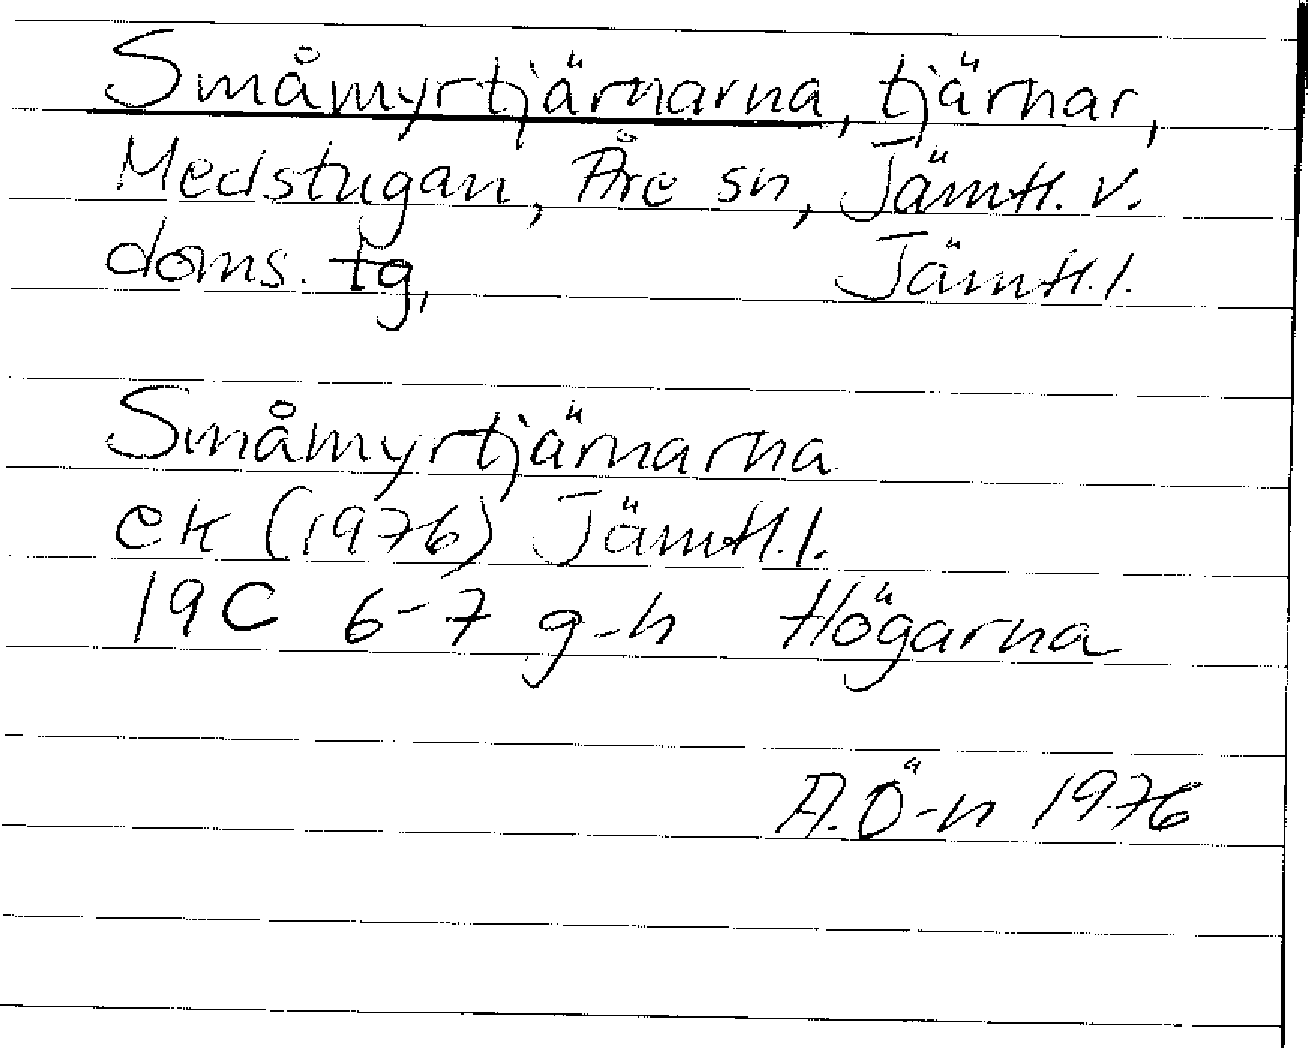 Småmyrtjärnarna, tjärnar,
Medstugan, Åre sn, Jämtl. v.
doms. tg, Jämtl. l.
Småmyrtjärnarna
ek (1976) Jämtl. l.
19C 6-7 g-h Högarna
A.Ö-n 1976